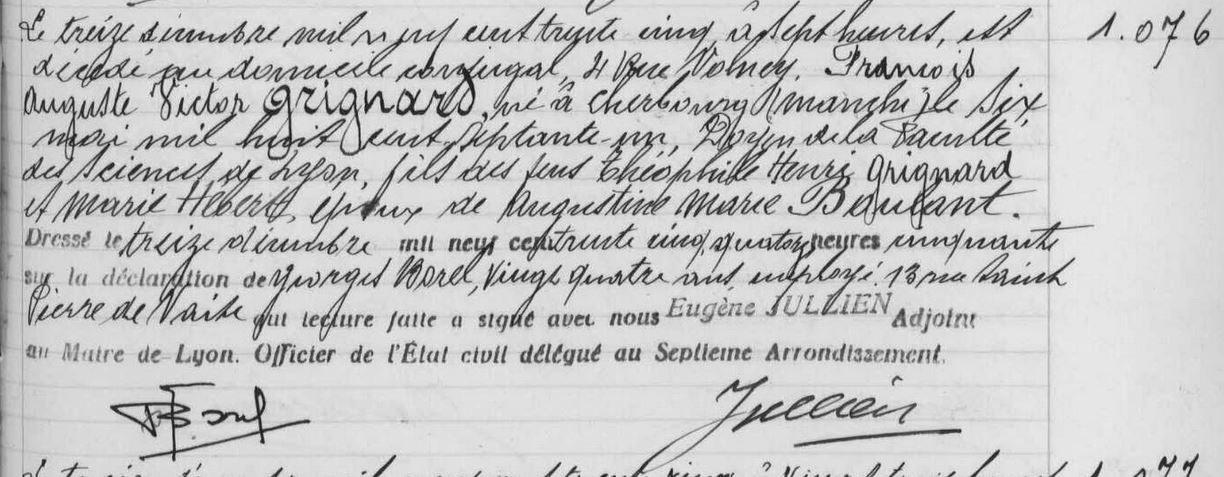 Le treize décembre mil neuf cent trente cinq, à sept heures, est 1.076
décédé au domicile conjugal, 4 Rue Volney, François
Auguste Victor Grignard, né à Cherbourg (manche) le six
mai mil huit cent septante-un, Doyen de la Faculté
des Sciences de Lyon, fils des feus Théophile Henri Grignard
et Marie Hébert, époux de Augustine Marie Boulant.
Dressé le treize décembre mil neuf cent trente cinq, quatorze heures cinquante
sur la déclaration de Georges Borel, vingt quatre ans, employé, 13 rue Saint
Pierre de Vaise qui lecture faite a signé avec nous Eugène JULLIEN Adjoint
au Maire de Lyon. Officier de l'État civil délégué au Septieme Arrondissement.
Borel Jullien
1.077